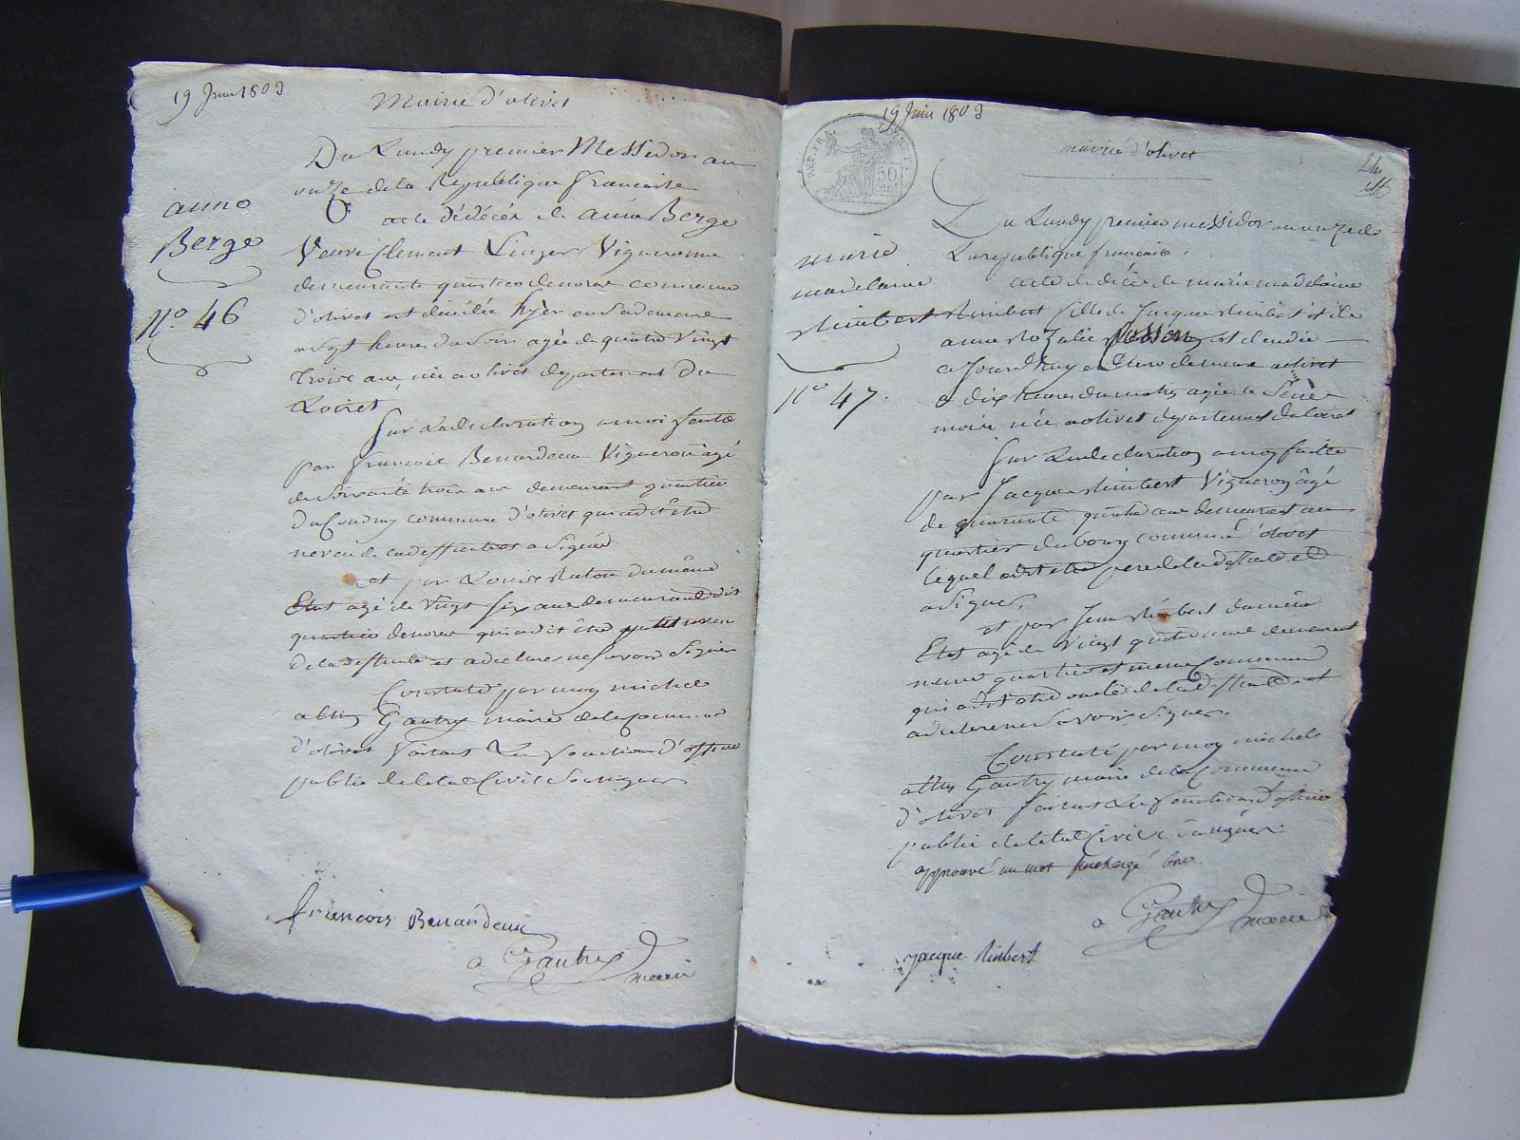 19 Juin 1803
Mairie d'olivet
Du Lundy premier Messidor an
onze de la Republique francaise
acte dédécés de anne Berge
anne
Berge
n.o 46
Veuve Clement Linger Vigneronne
demeurante quartier denoras commune
d'olivet est décédée hyer en sademeure
a sept heures du soir agée de quatre Vingt
troise ans née a olivet departement du
Loiret
Sur La declaration a moi faitte
par francois Benardeau Vigneron agé
de soixante trois ans demeurant quartier
du Coudray commune d'olivet qui a dit être
neveu de la deffuncte et a Signé
et par Louis Raton du même
Etat agé de Vingt six ans demeurant dit
quartier denoras qui a dit être petit neveu
de la deffunte et a declarer ne savoir Signer
Constaté par moy michel
a Gautry maire de la Commune
d'olivet faisant Les fonctions d'officier
public de letat Civil Soussigner
francois Benardeau
a Gautry maire
19 Juin 1803
REP. FRA.
50
mairie d'olivet
Du Lundy premier messidor an onze de
La republique francaise
acte de décée de marie madelaine
marie
madelaine
Rimbert
n.o 47.
Rimbert fille de Jacque Rimbert et de
anne Rozalie posson est decedée
a Jourdhuy
a dix heures du matin agée de Seize
mois née a olivet departement du loiret
Sur La declaration a moy faitte
par Jacque Rimbert Vigneron âgé
de quarante quatre ans demeurant au
quartier du bourg commune d'olivet
lequel a dit être pere de la deffunte et
a Signer,
et par Jean Rimbert du même
Etat agé de Vingt quatre ans demeurant
meme quartier et meme Commune
qui a dit être oncle de la deffunte et
a declare ne Savoir Signer.
Constaté par moy michel
Gautry maire de la Commune
d'olivet faisant Les fonctions d'officier
public de letat Civil Sousigner
approuvé un mot surchargé bon
a Gautry maire
Jacque Rimbert